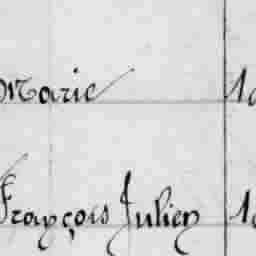 Marie
François Julien